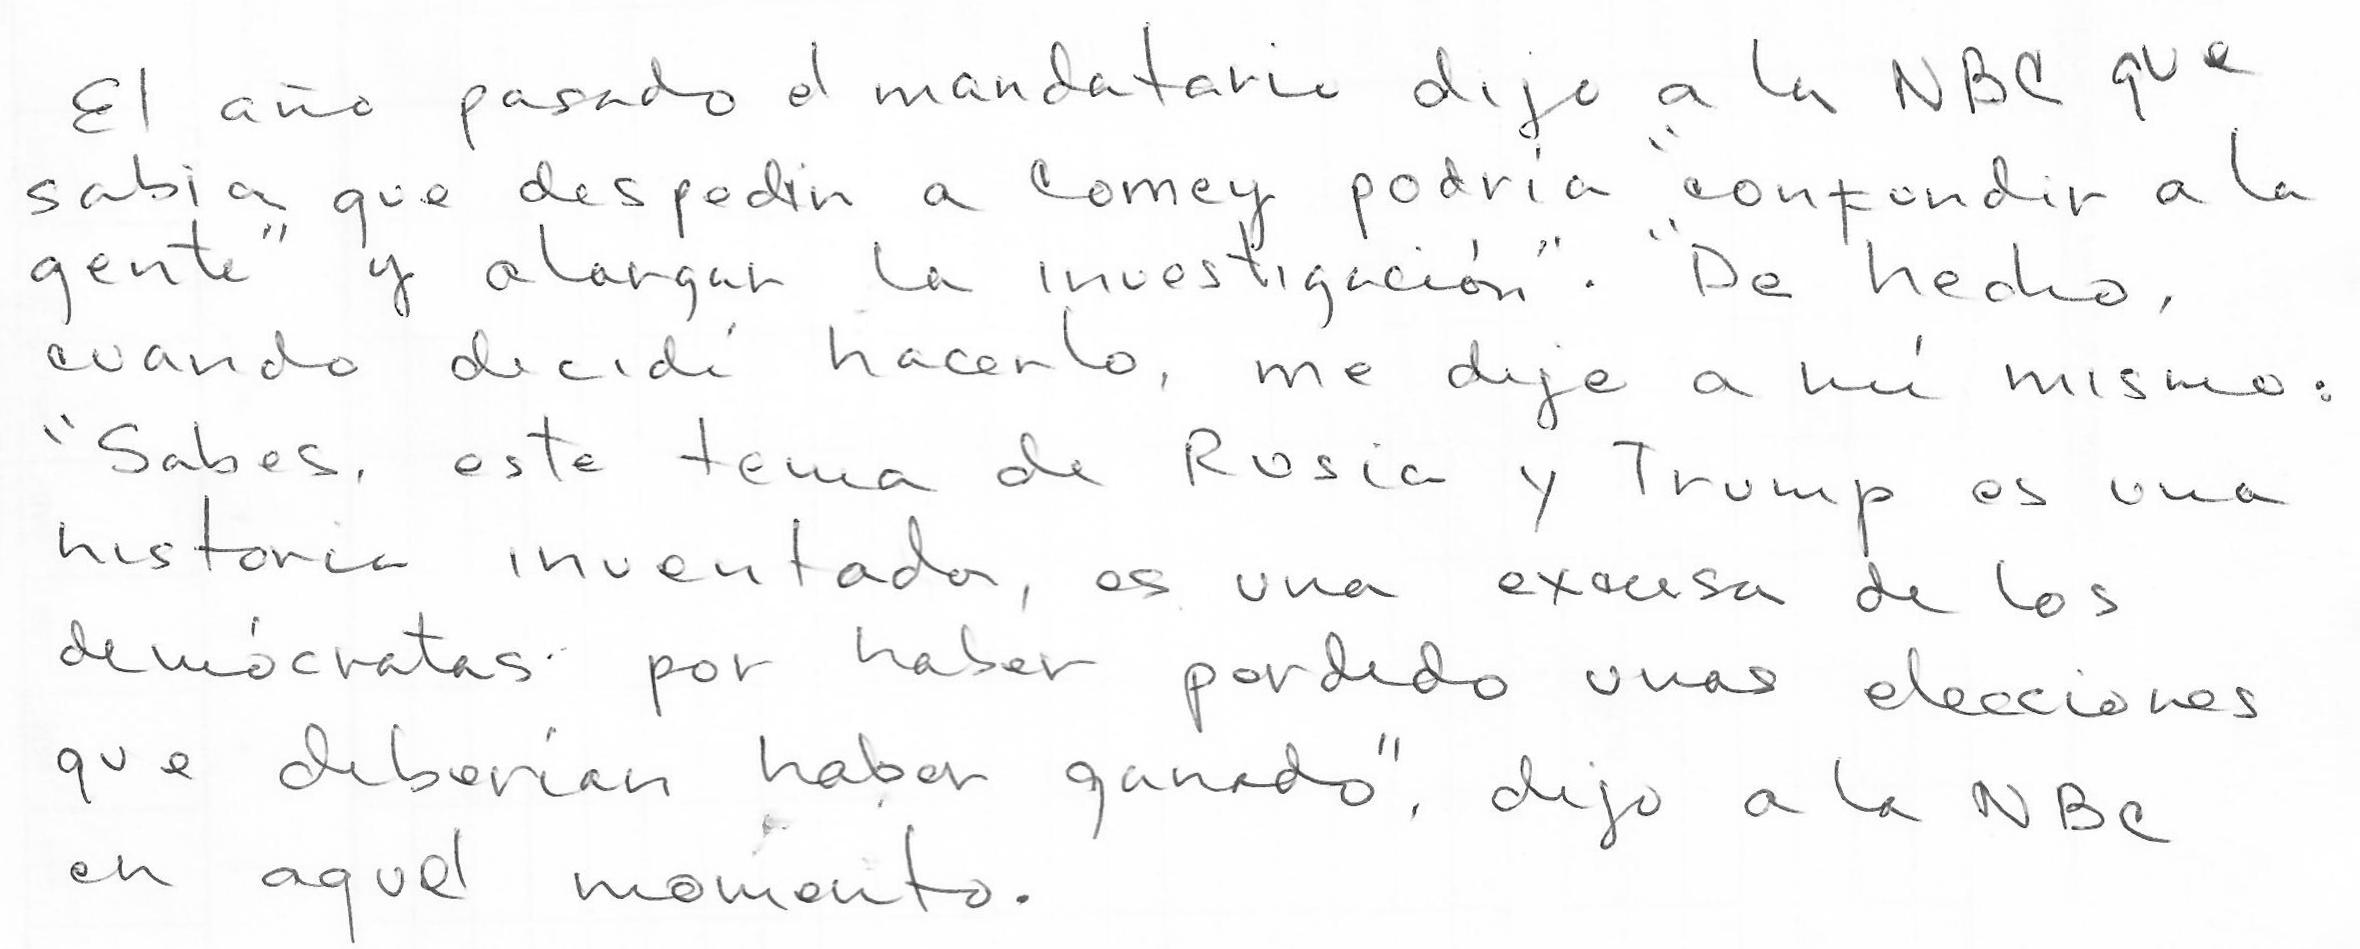 El año pasado el mandatario dijo a la NBC que
sabia que despedir a Comey podría "confundir a la
gente" y alargar la investigación". "De hecho,
cuando decidí hacerlo, me dije a mí mismo:
"Sabes, este tema de Rusia y Trump es una
historia inventada, es una excusa de los
demócratas por haber perdido unas elecciones
que deberían haber ganado", dijo a la NBC
en aquel momento.